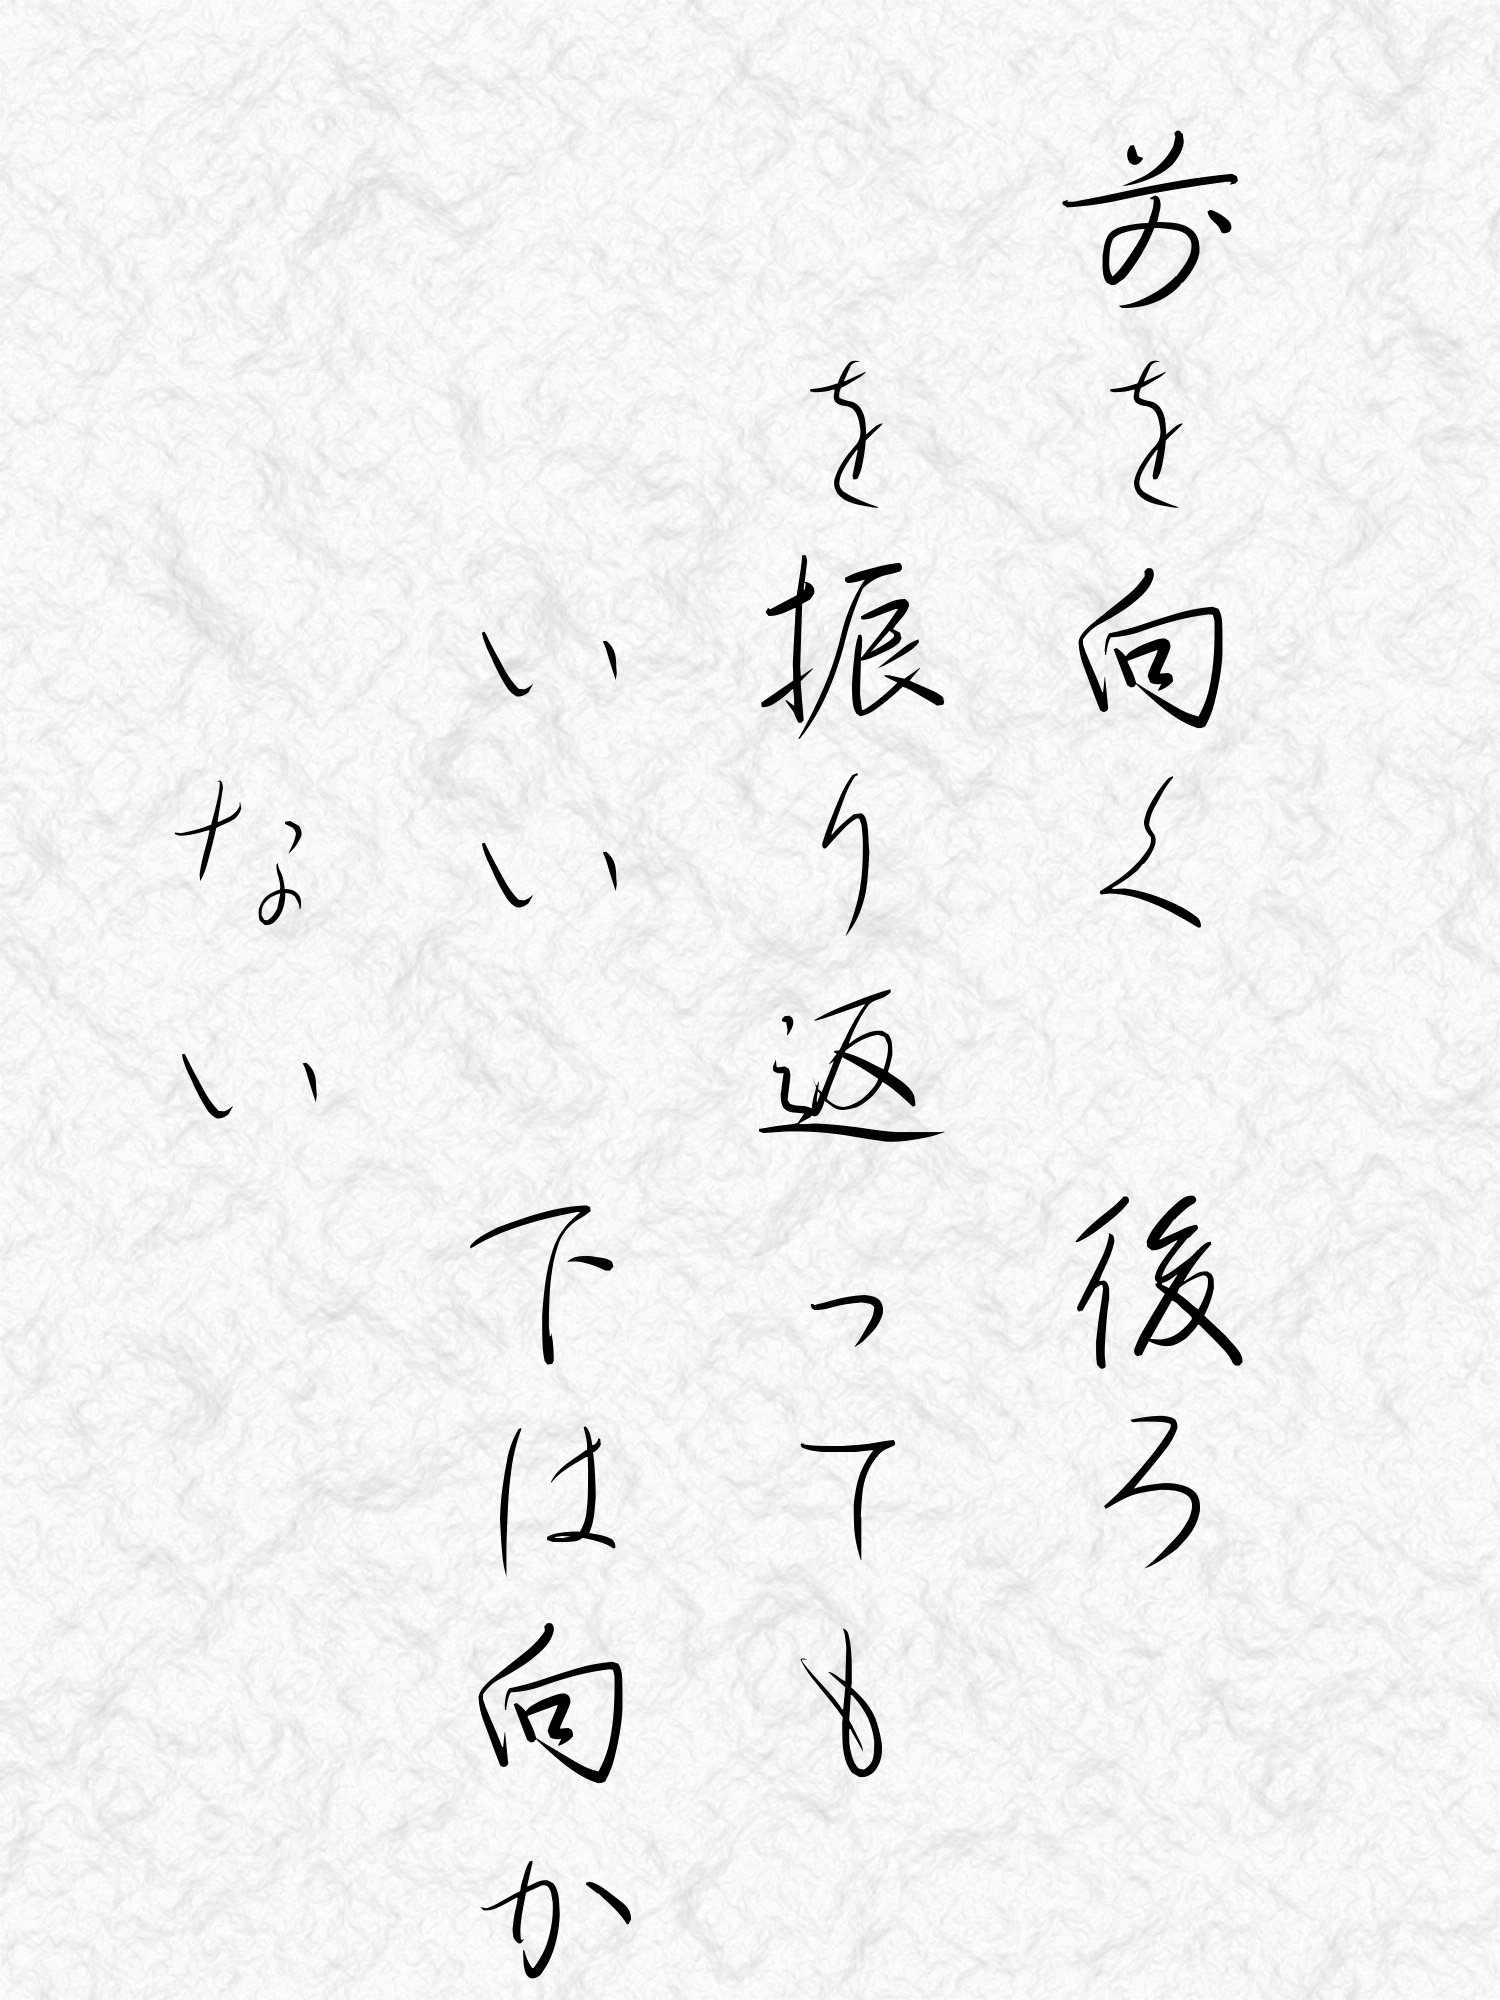 前を向く　後ろ
を振り返っても
いい　下は向か
ない